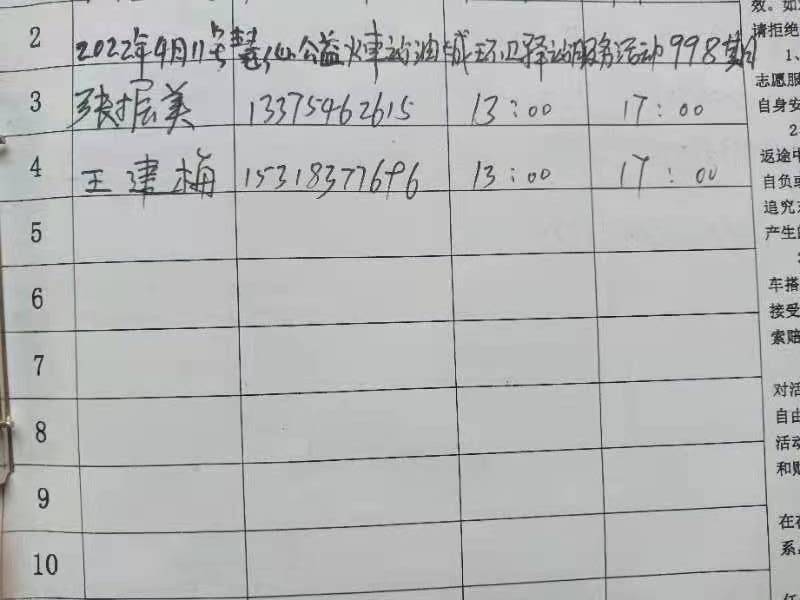 2 2022年9月11号慧仙公益火車站油城环卫驿站服务活动998期
3 张振美 13375462615 13:00 17:00
4 王建梅 15318377696 13:00 17:00
5
6
7
8
9
10
效。如
请拒绝
1、
志愿服
自身安
2
返途中
自负或
追究
产生的
车搭
接受
索赔
对活
自由
活动
和财
在在
系
任